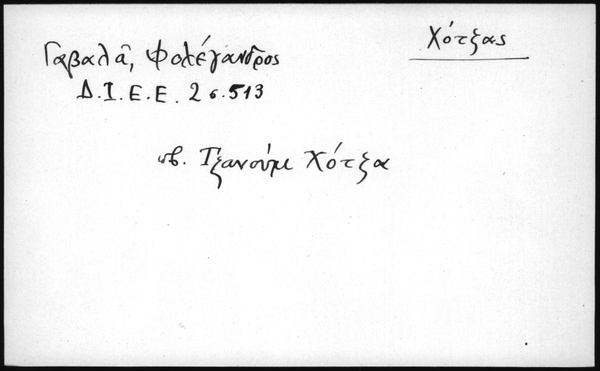 Χότζας
Γαβαλᾶ, Φολέγανδρος
Δ.Ι.Ε.Ε. 2 σ. 513
πβ. Τζανούμε Χότζα